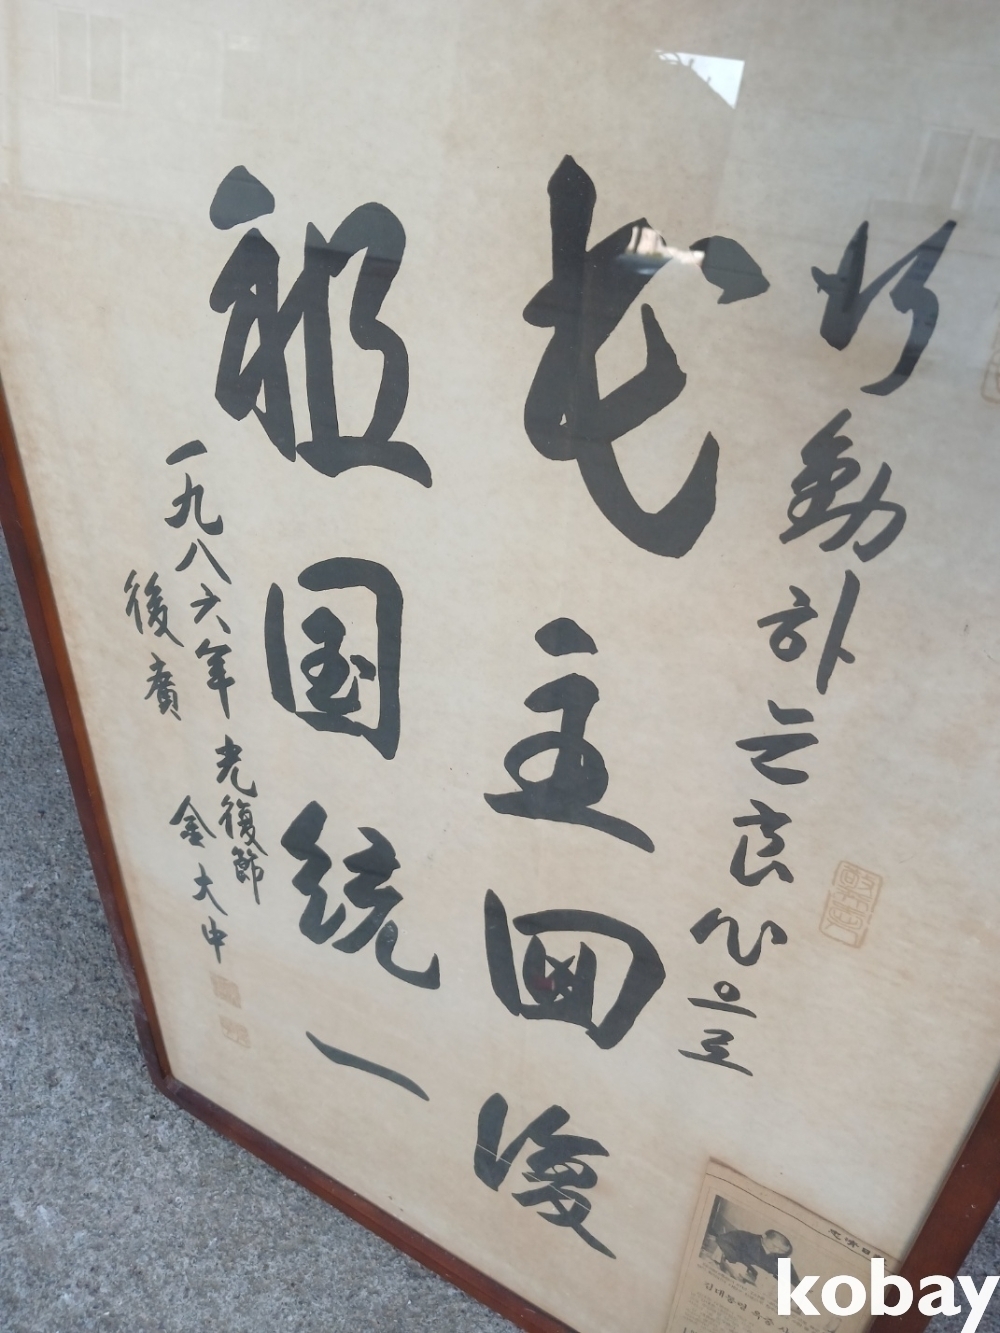 行動하는良心으로
民主回復
祖国統一
一九八六年 光復節
後廣 金大中
kobay